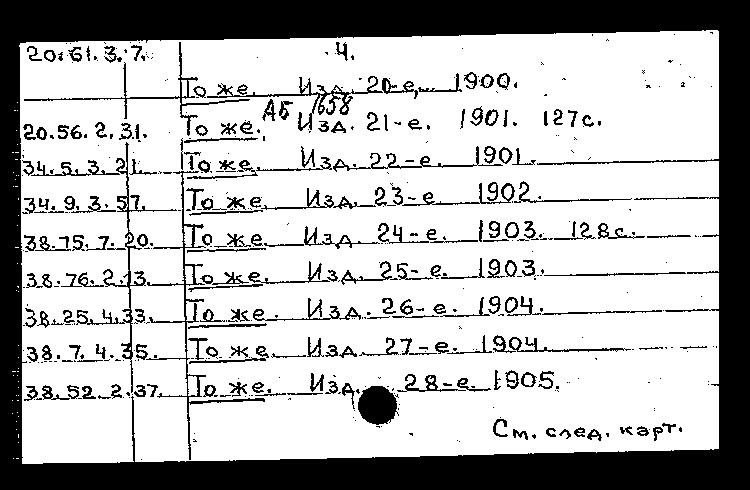 20.61.3.7. 4.
То же. Изд. 20-е, 1900.
АБ 1658
20.56.2.31. То же. Изд. 21-е. 1901. 127с.
34.5.3.21. То же. Изд. 22-е. 1901.
34.9.3.57. То же. Изд. 23-е 1902.
38.75.7.20. То же. Изд. 24-е. 1903. 128с.
38.76.2.13. То же. Изд. 25-е. 1903.
38.25.4.33. То же. Изд. 26-е. 1904.
38.7.4.35. То же. Изд. 27-е. 1904.
38.52.2.37. То же. Изд. 28-е. 1905.
См. след. карт.